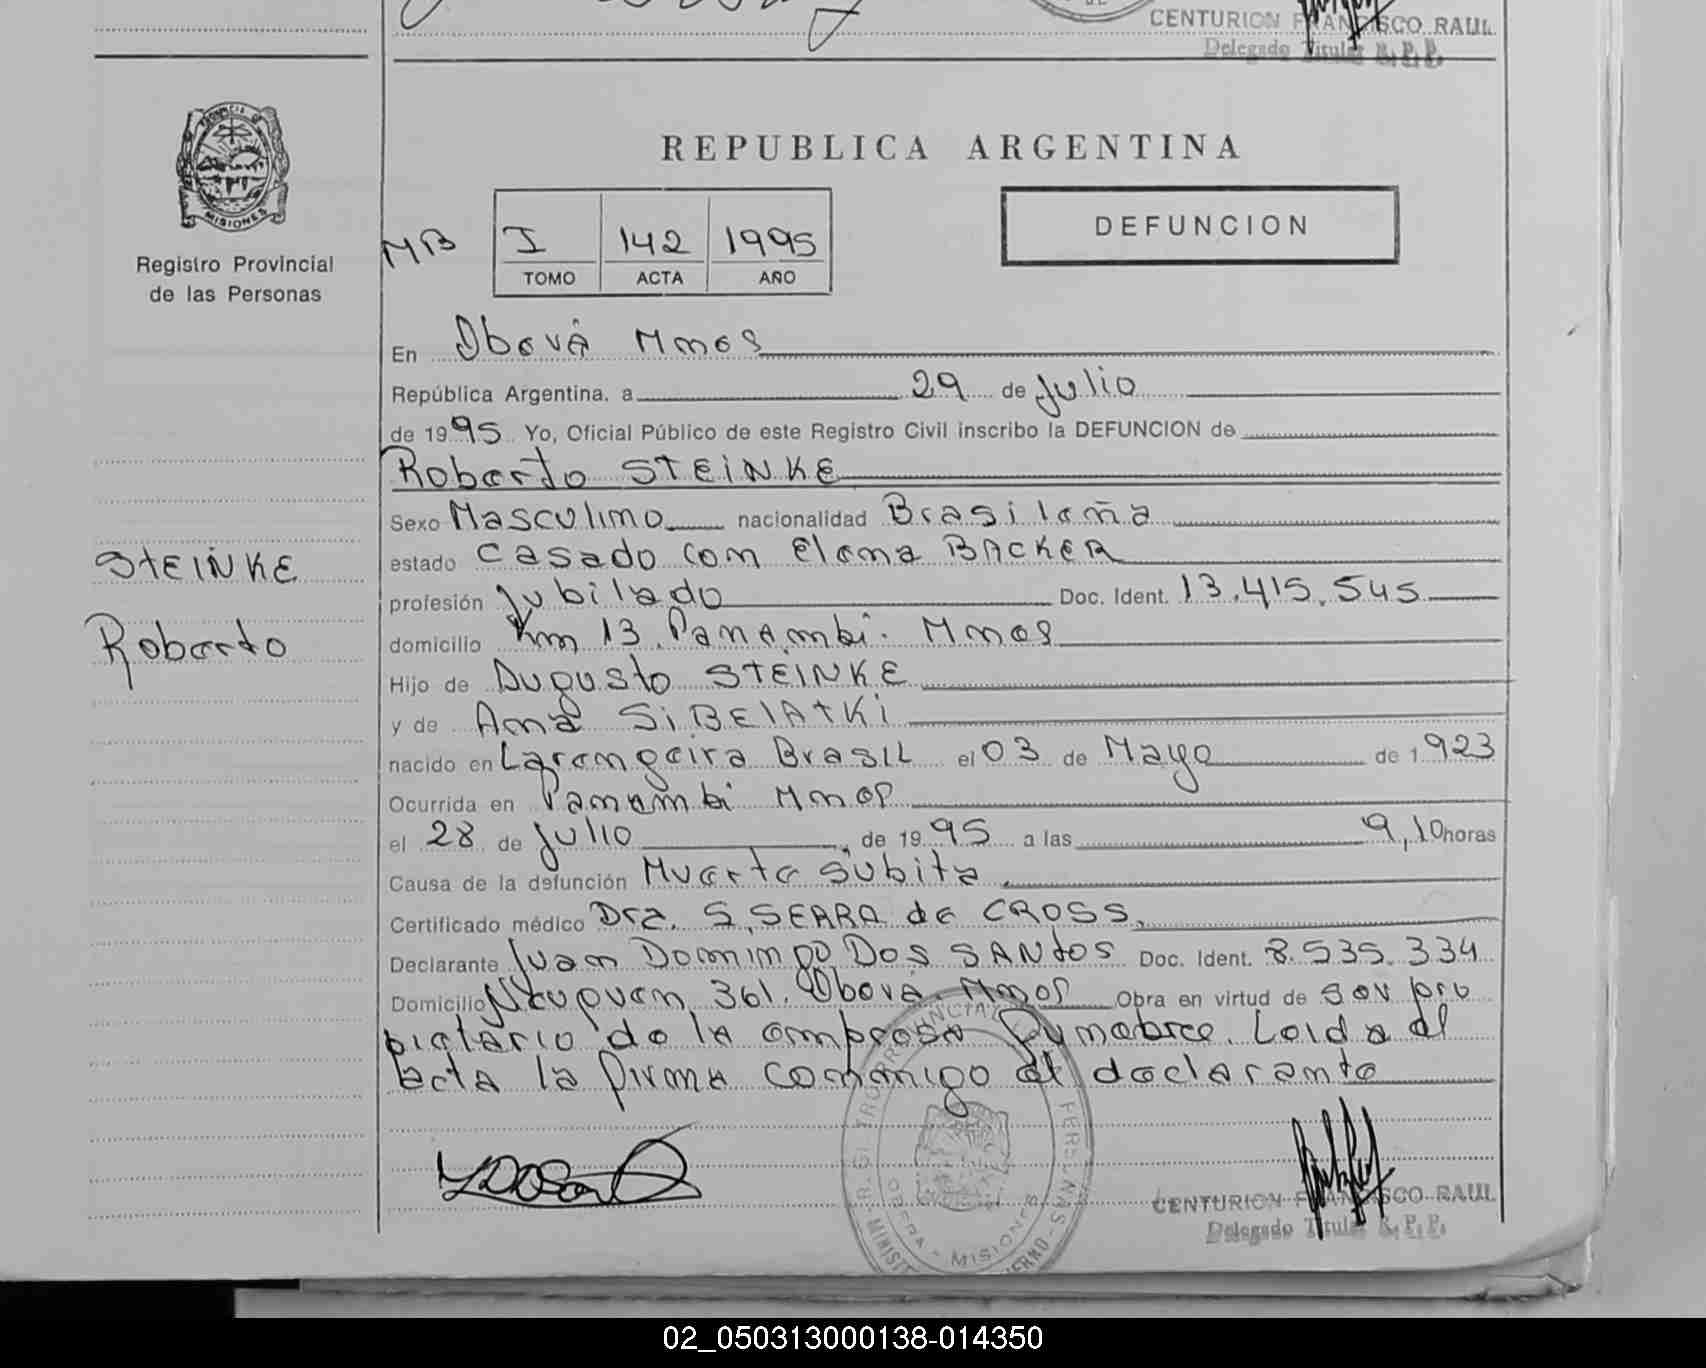 CENTURION FRANCISCO RAUL
Delegado Titular R. P. P.
PROVINCIA DE
MISIONES
Registro Provincial
de las Personas
REPUBLICA ARGENTINA
MB
I 142 1995
TOMO ACTA AÑO
DEFUNCION
En Oberá Mnes
República Argentina, a 29 de Julio
de 1995 Yo, Oficial Público de este Registro Civil inscribo la DEFUNCION de
Roberto STEINKE
Sexo Masculino nacionalidad Brasileña
estado Casado con Elena BACKER
profesión Jubilado Doc. Ident. 13.415.545
domicilio Km 13. Panambi. Mnes
Hijo de Augusto STEINKE
y de Ana SIBELATKI
nacido en Larangeira Brasil el 03 de Mayo de 1923
Ocurrida en Panambi Mnes
el 28 de Julio de 1995 a las 9,10 horas
Causa de la defunción Muerte subita
Certificado médico Dra. S. SERRA de CROSS.
Declarante Juan Domingo DOS SANTOS Doc. Ident. 8.535.334
Domicilio 361. Oberá. Mnes Obra en virtud de ser pro
pietario de la empresa Funebre. Leida el
acta la firma conmigo el declarante
STEINKE
Roberto
OBERA - MISIONES
CENTURION FRANCISCO RAUL
Delegado Titular R. P. P.
02_050313000138-014350